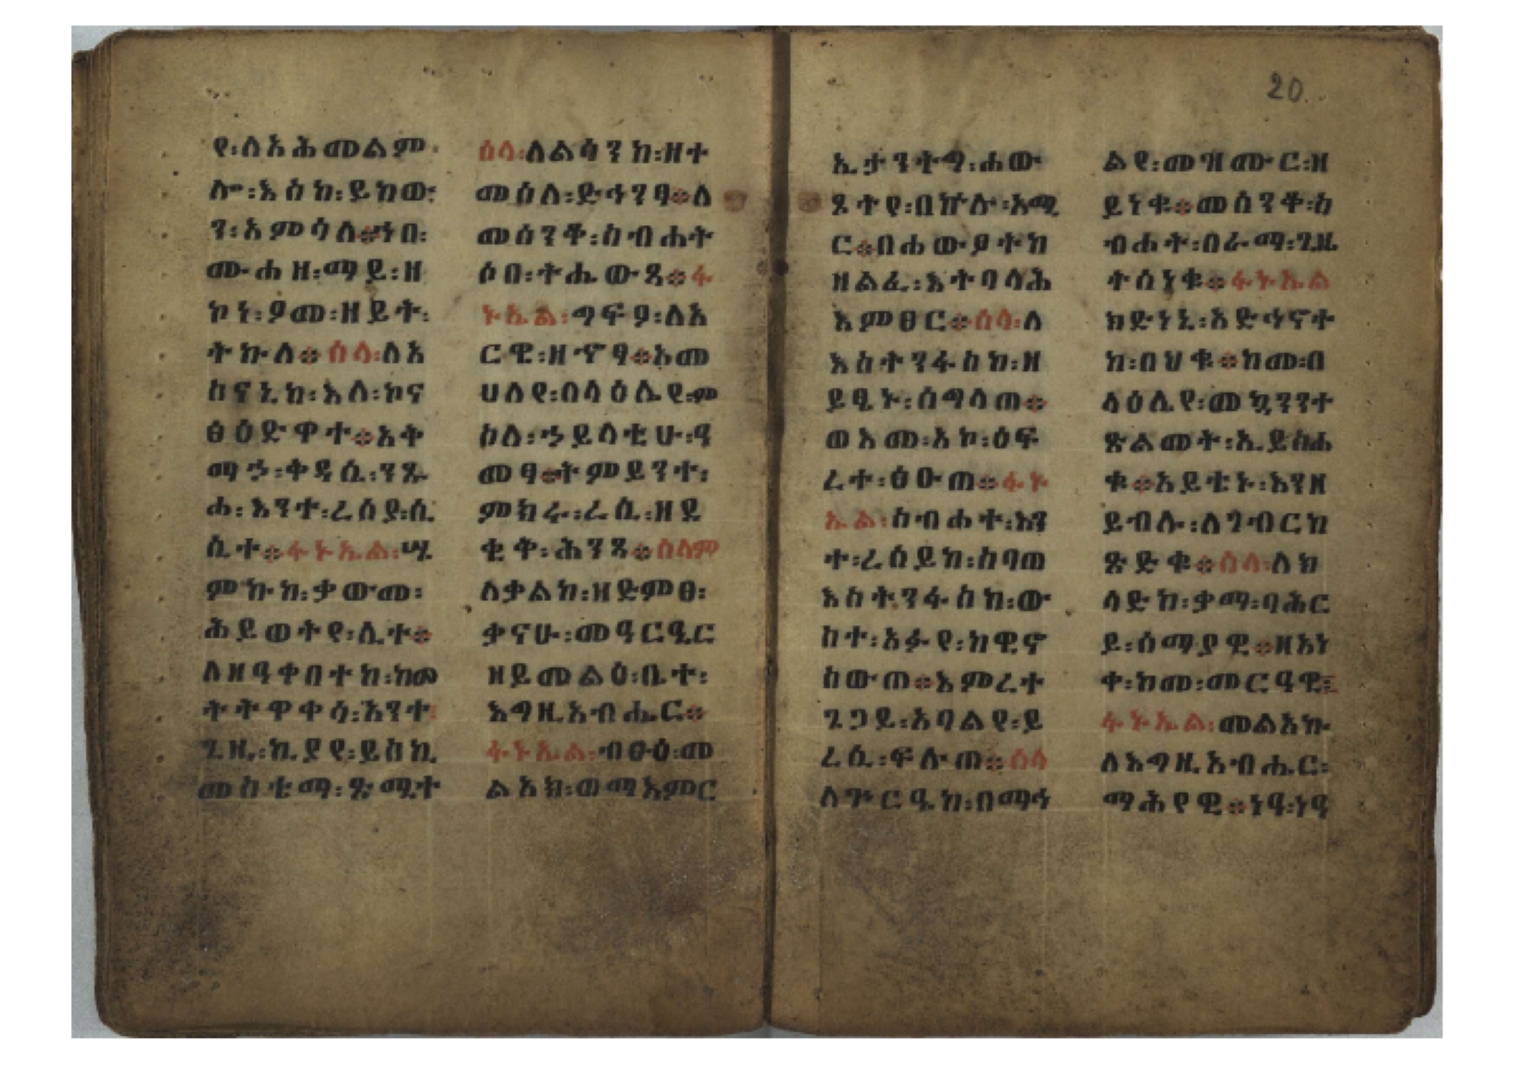 የ፡ለአሕመልም
ሎ፡እስከ፡ይከው
ን፡አምሳለ፨ነበ፡
ሙሐዘ፡ማይ፡ዘ
ኮነ፡ያመ፡ዘይት፡
ትኩል፨ሰላ፡ለአ
ስናኒከ፡እለ፡ኮና
ፀዕድዋተ፨አቅ
ማኃ፡ቀዳሲ፡ንጹ
ሐ፡እንተ፡ረሰያ፡ሲ
ሲተ፨ፋኑኤል፡ሢ
ምኩከ፡ቃውመ፡
ሕይወትየ፡ሊተ፨
ለዘዓቀበተከ፡ከመ
ትትዋቀሳ፡እንተ
ጊዜ፡ኪያየ፡ይስኪ
መስቴማ፡ጽሚተ
ሰላ፡ለልሳንከ፡ዘተ
መሰለ፡ድኅንፃ፨ለ
መሰንቆ፡ስብሐት
ሶበ፡ተሐውጻ፨ፋ
ኑኤል፡ግፍዖ፡ለአ
ርዌ፡ዘኖፃ፨አመ
ሀለየ፡በላዕሌየ፡ም
ስለ፡ኃይላቲሁ፡ዓ
መፃ፨ትምይንተ፡
ምክሩ፡ረሲ፡ዘደ
ቂቀ፡ሕንጻ፨ሰላም
ለቃልከ፡ዘድምፀ፡
ቃናሁ፡መዓርዒር
ዘይመልዕ፡ቤተ፡
እግዚአብሔር፨
ፋኑኤል፡ብፁዕ፡መ
ልአክ፡ወማእምር
ኢታንትግ፡ሐው
ጾተየ፡በኵሉ፡አሚ
ር፨በሐውፃትከ
ዘልፈ፡እትባላሕ
እምፀር፨ሰላ፡ለ
እስትንፋስከ፡ዘ
ይፄኑ፡ሰግላጠ፨
ወእመ፡አኮ፡ዕፍ
ረተ፡ፅዑጠ፨ፋኑ
ኤል፡ስብሐተ፡እን
ተ፡ረሰይከ፡ስባጠ
እስትንፋስከ፡ው
ስተ፡አፉየ፡ክዊኖ
ስውጠ፨እምረተ
ጌጋይ፡እባልየ፡ይ
ረሲ፡ፍሉጠ፨ሰላ
ለጕርዔከ፡በማኅ
ልየ፡መዝሙር፡ዘ
ይነቁ፨መሰንቆ፡ስ
ብሐት፡በራማ፡ጊዜ
ተሰነቁ፨ፋኑኤል
ክድነኒ፡አድኅኖተ
ከ፡በህቁ፨ከመ፡በ
ላዕሌየ፡መኳንንተ
ጽልመት፡ኢይስሐ
ቁ፨አይቴኑ፡እንዘ
ይብሉ፡ለገብርከ
ጽድቁ፨ሰላ፡ለክ
ሳድከ፡ቃማ፡ባሕር
ይ፡ሰማያዊ፨ዘአነ
ቀ፡ከመ፡መርዓዊ፤
ፋኑኤል፡መልአኩ
ለእግዚአብሔር፡
ማሕየዊ፨ነዓ፡ነዓ
20